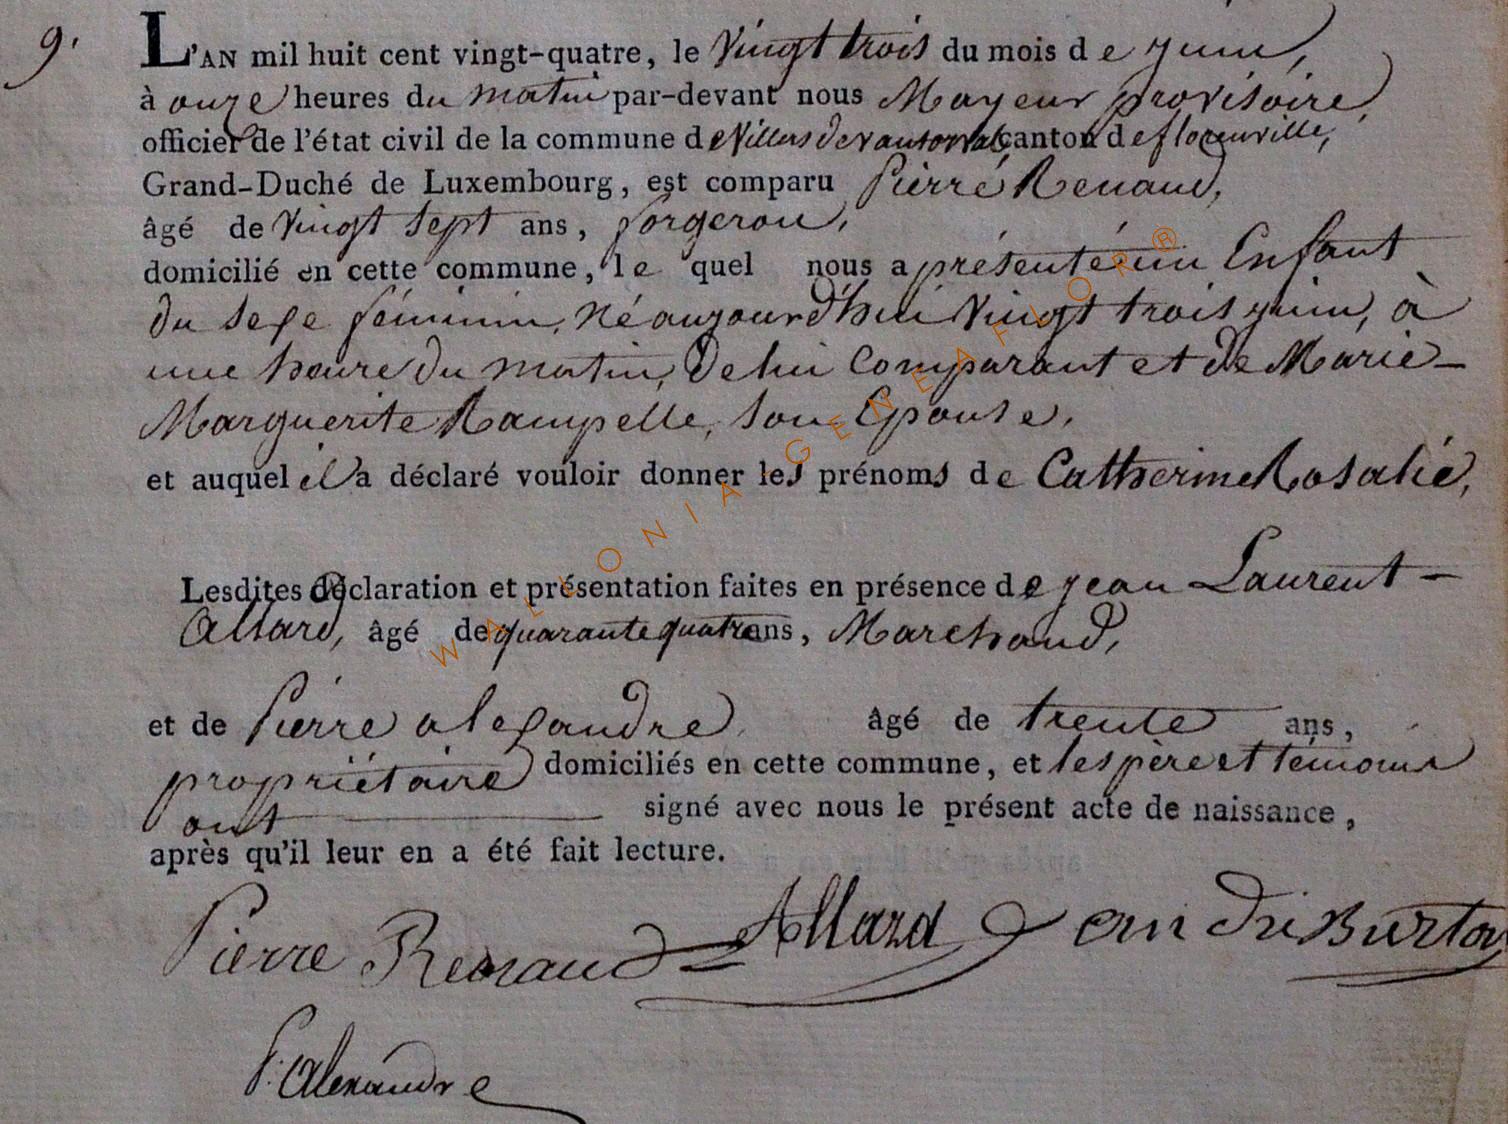 9.
L'AN mil huit cent vingt-quatre, le Vingt trois du mois de juin,
à onze heures du matin par-devant nous Mayeur provisoire,
officier de l'état civil de la commune de Villers devant orval canton de florenville,
Grand-Duché de Luxembourg, est comparu Pierre Renaud,
âgé de vingt sept ans, forgeron,
domicilié en cette commune, le quel nous a présenté un Enfant
du sexe féminin, né aujourd'hui Vingt trois juin, à
une heure du matin, de lui Comparant et de Marie-
Marguerite Rampelle, son Epouse,
et auquel il a déclaré vouloir donner les prénoms de Catherine Rosalie,
Lesdites déclaration et présentation faites en présence de jean Laurent -
Allard, âgé de quarante quatre ans, Marchand,
et de Pierre alexandre, âgé de trente ans,
propriétaire domiciliés en cette commune, et les père et témoins
ont signé avec nous le présent acte de naissance,
après qu'il leur en a été fait lecture.
Pierre Renaud Allard Burton
P. Alexandre
WALLONIA-GENEAFLOR®